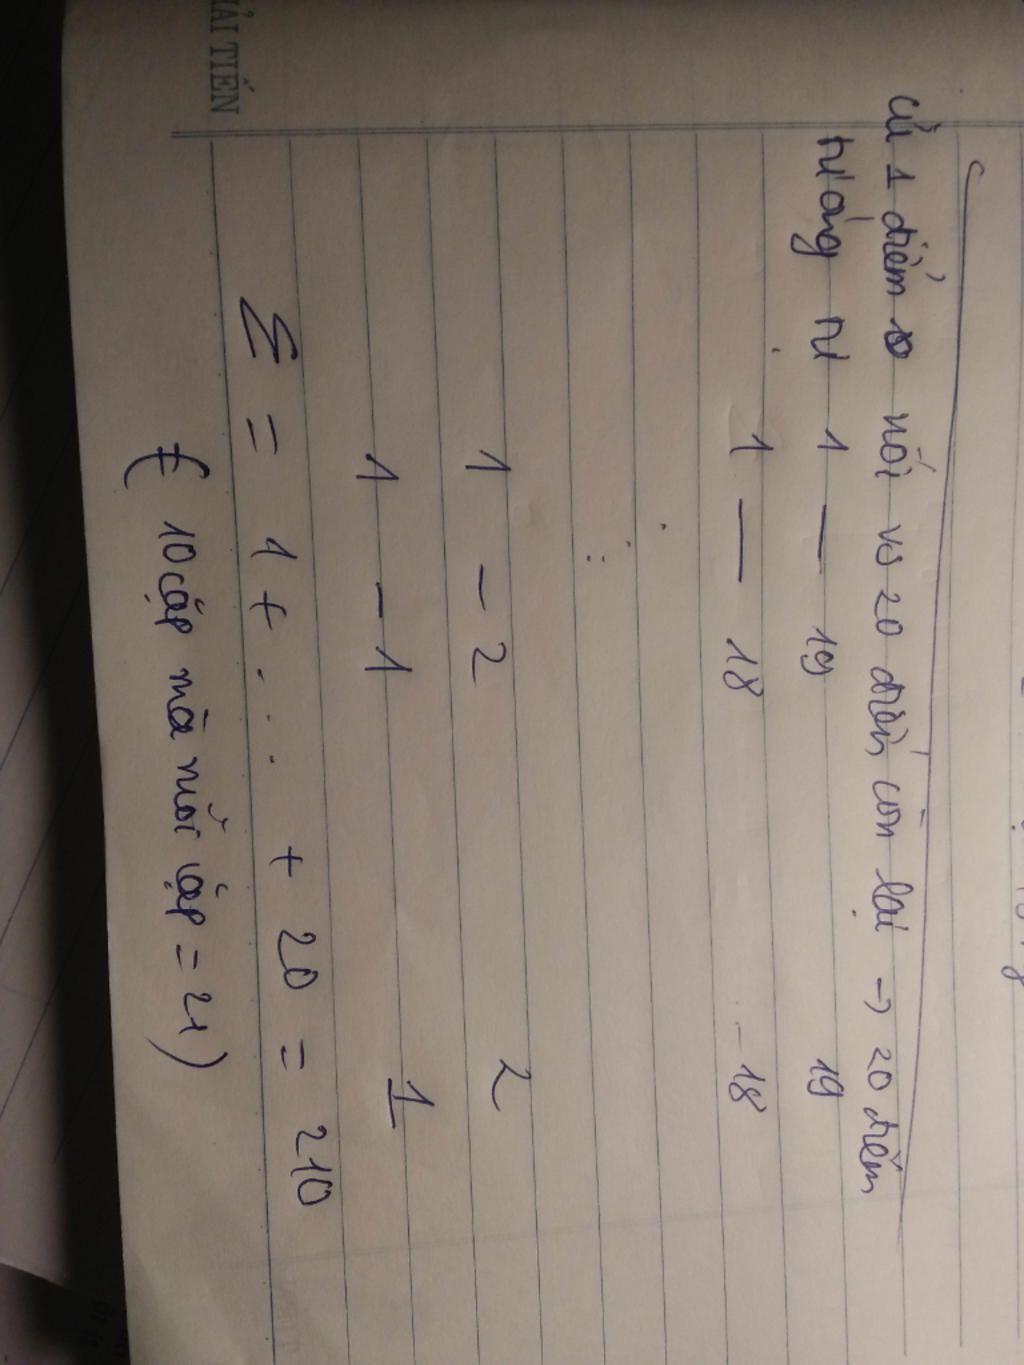 Cứ 1 điểm nối vs 20 điểm còn lại → 20 điểm
tương tự 1 — 19 19
1 — 18 - 18
⋮
1 - 2 2
1 - 1 1
Σ = 1 + ... + 20 = 210
( 10 cặp mà mỗi cặp = 21 )
ẢI TIẾN